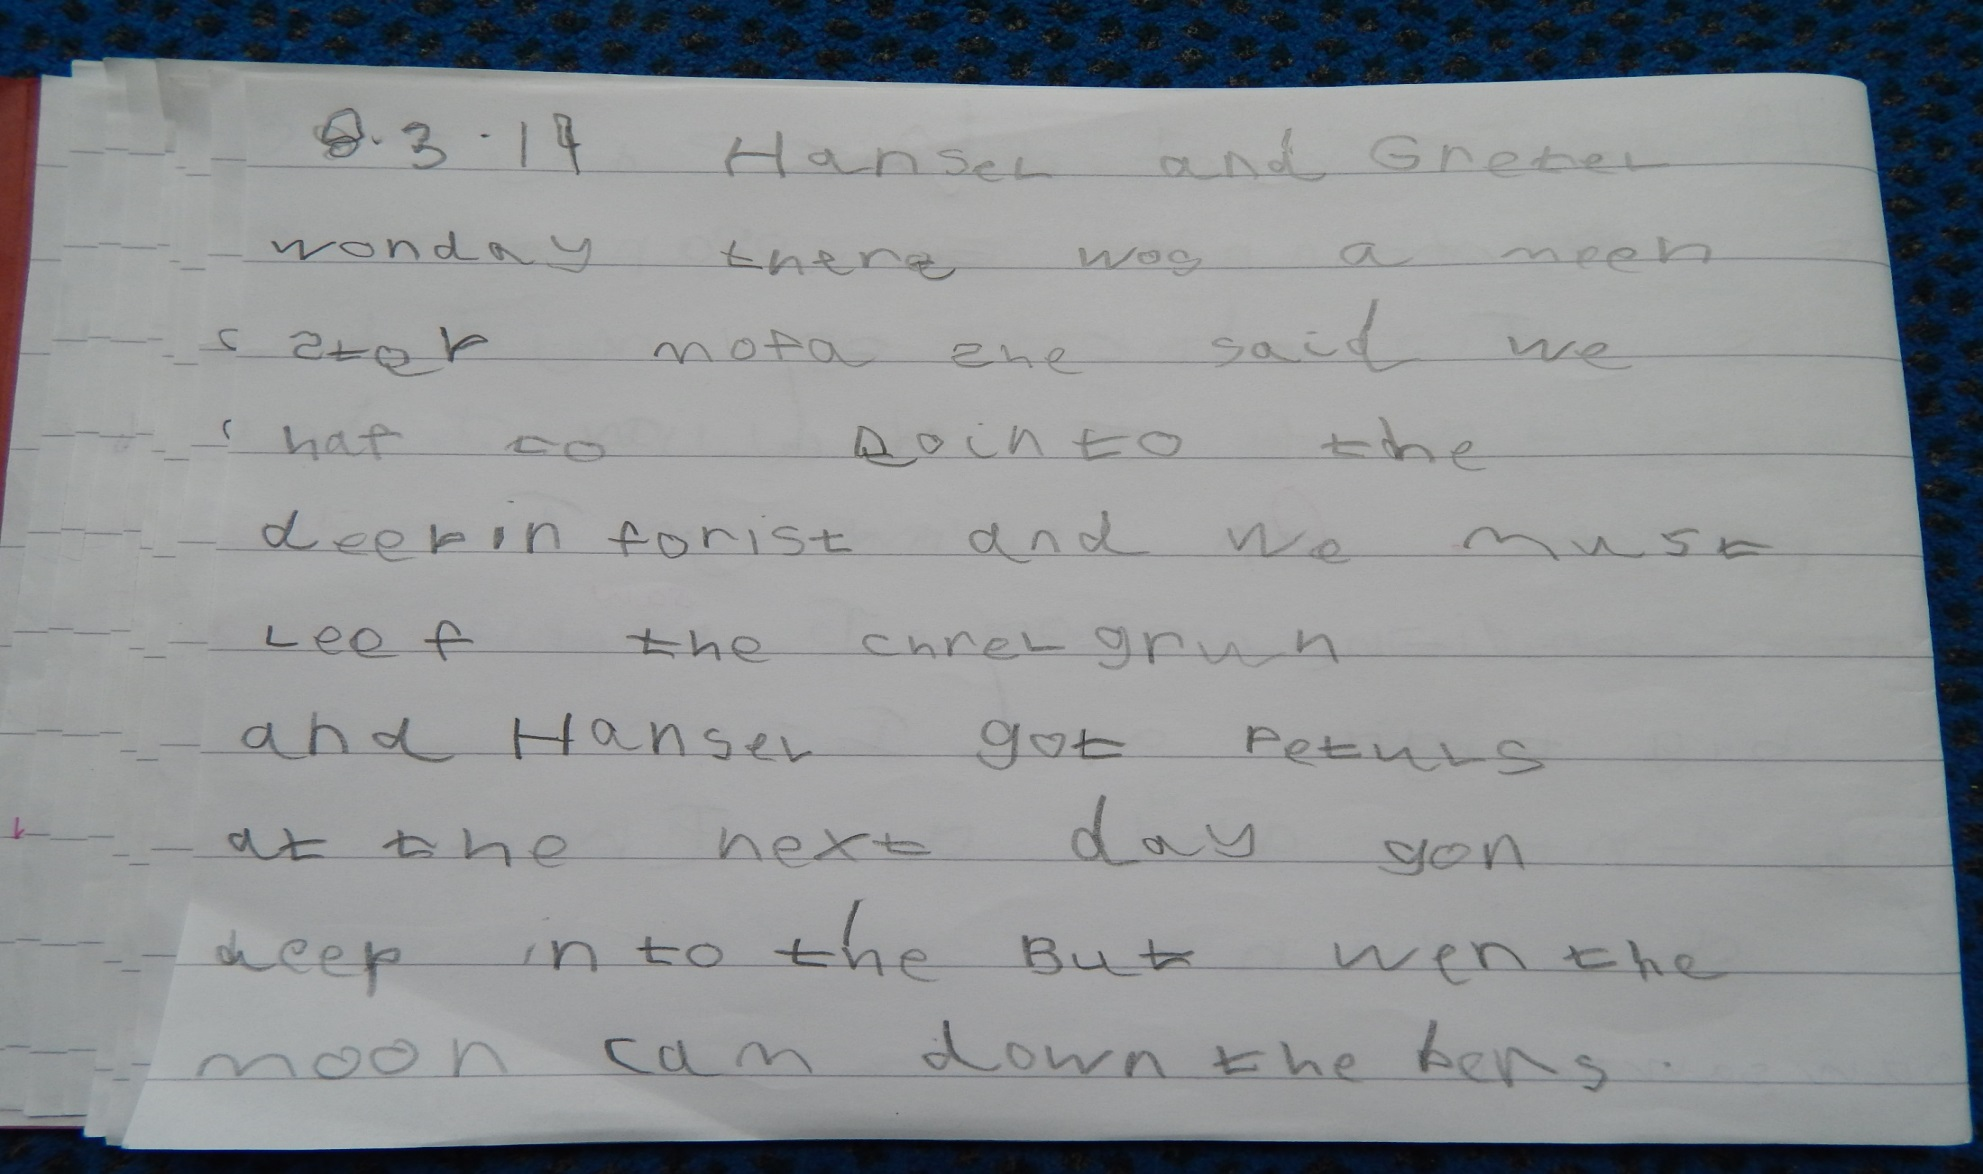 8.3.14 Hansel and Gretel
wonday there wos a meen
step mofa she said we
haf to gointo the
deepin forist and we must
Leef the chrel grwn
and Hansel got petuls
at the next day gon
deep in to the But wen the
moon cam down the bens.